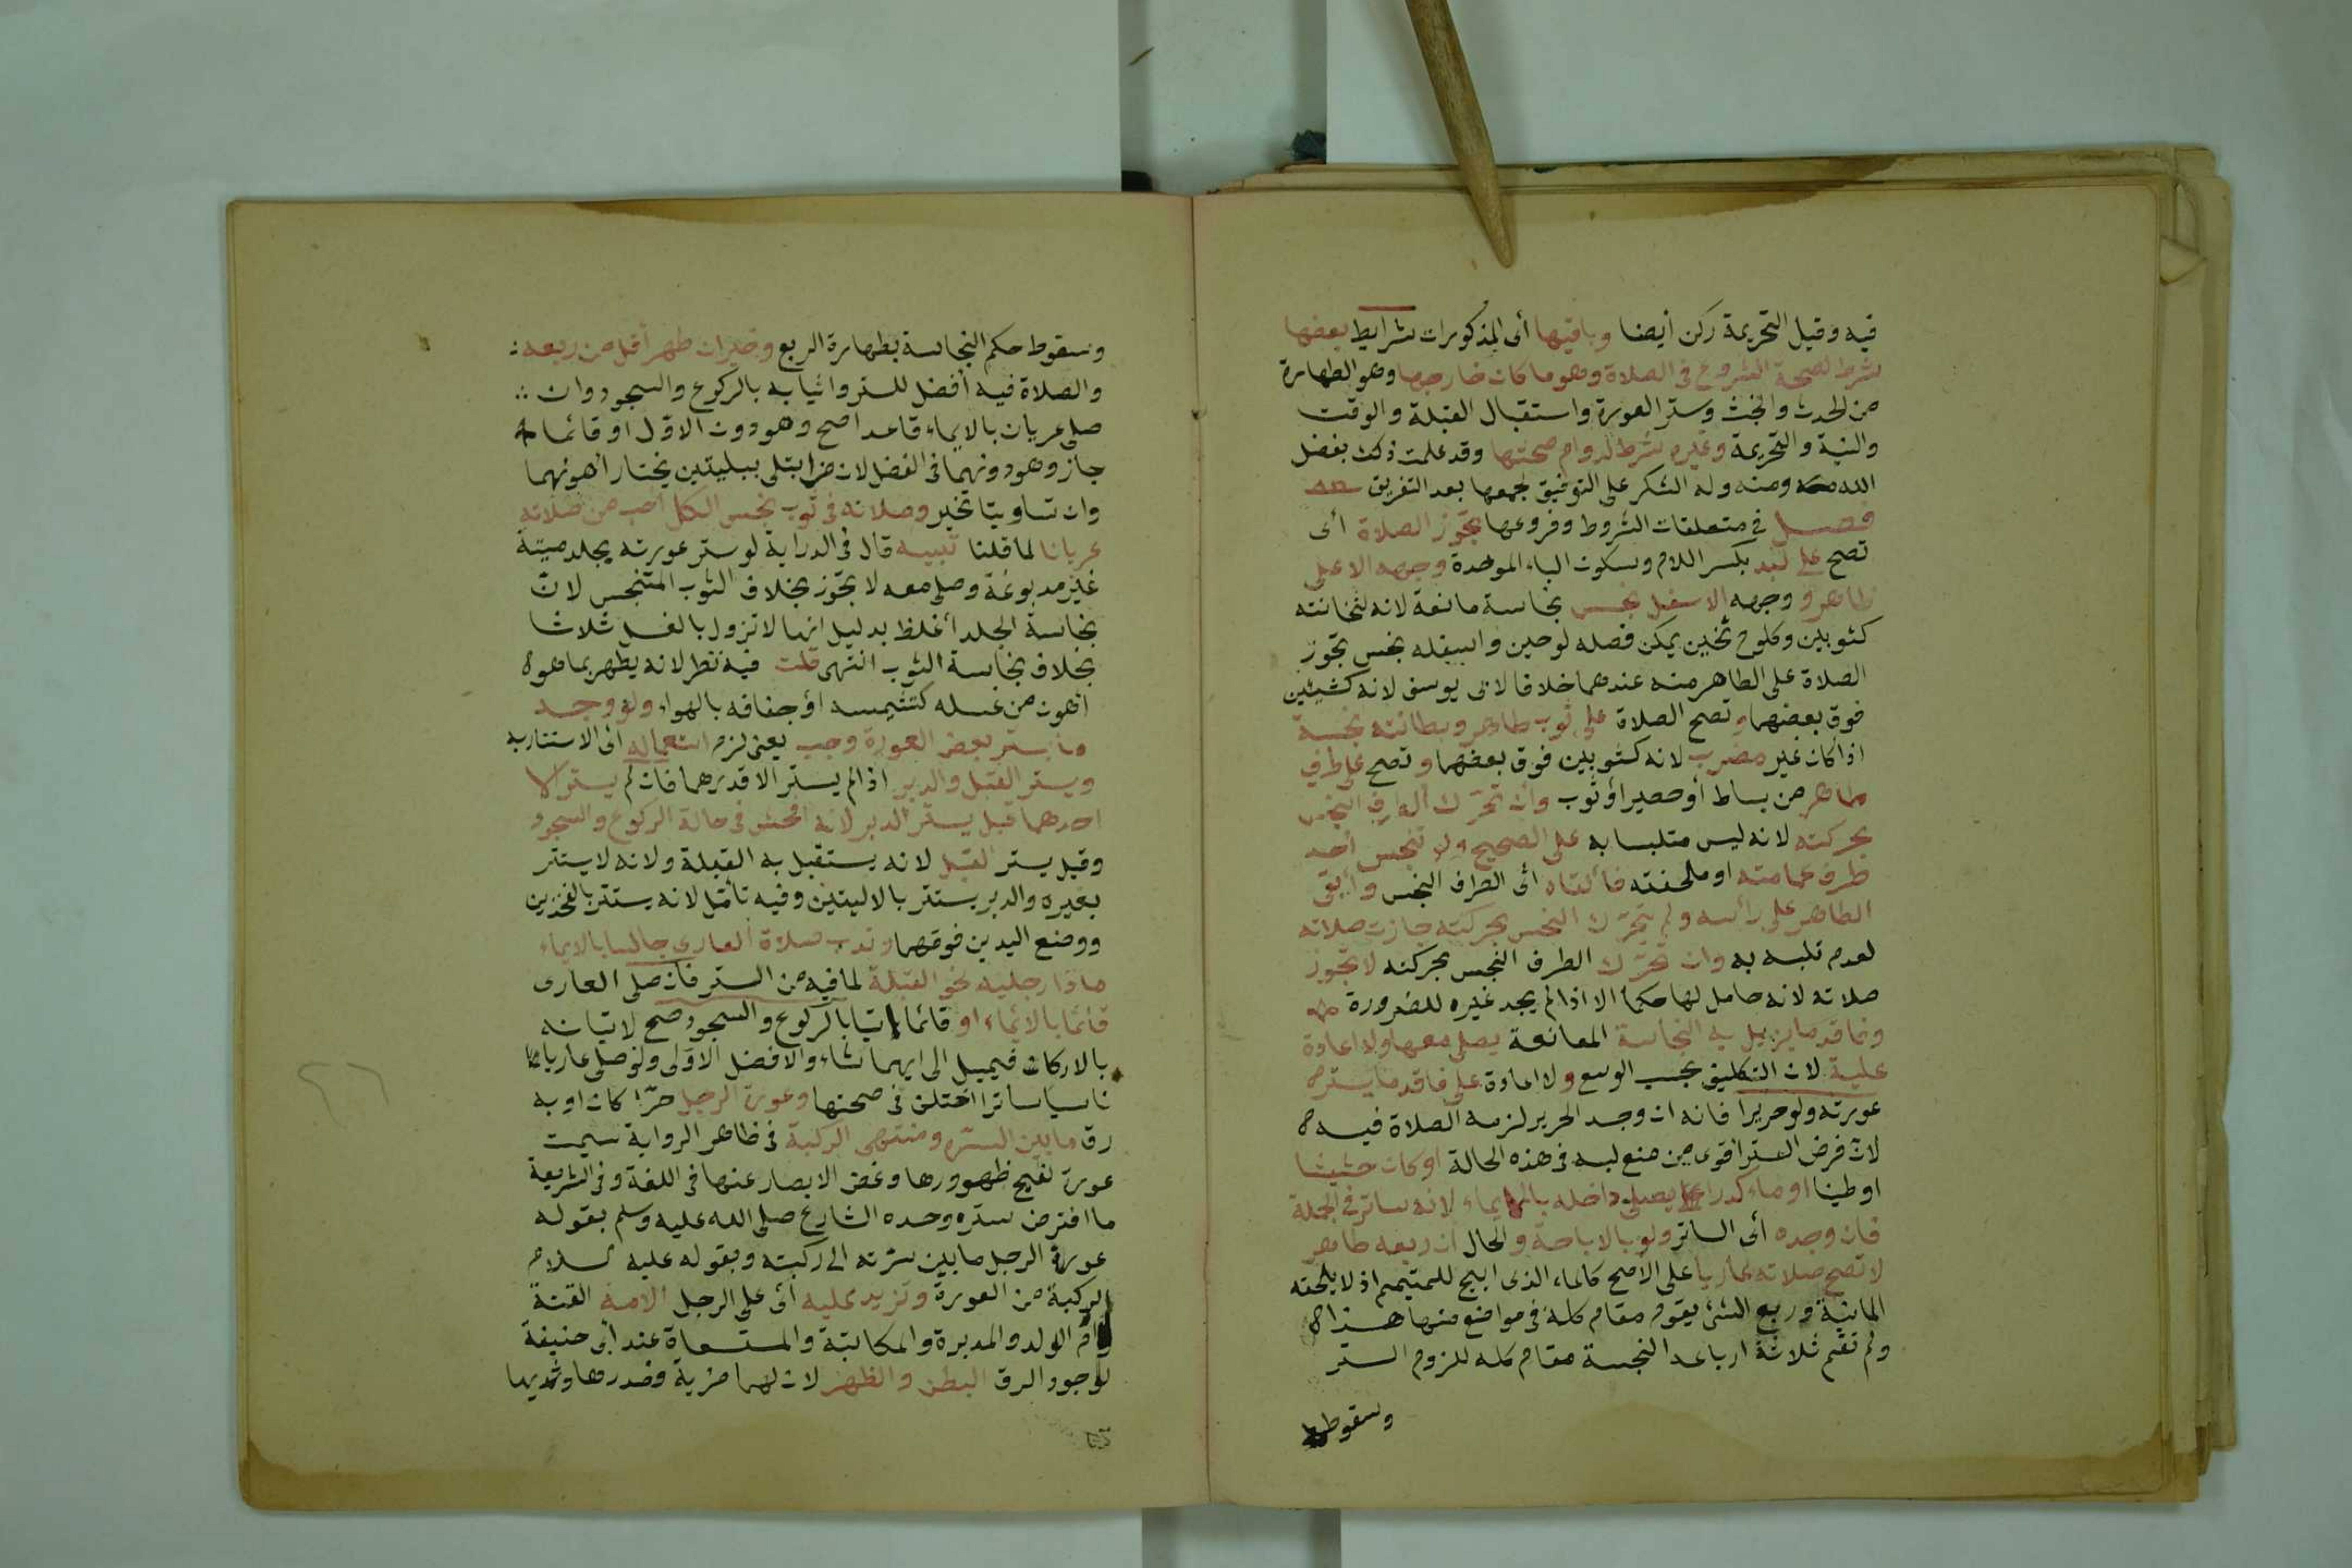 فيه وقيل التحريمة ركن أيضا وباقيها أى المذكورات شرايط بعضها
شرط لصحة الشروع فى الصلاة وهو ما كان خارجها وهو الطهارة
من الحدث والخبث وستر العورة واستقبال القبلة والوقت
والنية والتحريمة وغيره شرط لدوام صحتها وقد علمت ذلك بفضل
الله ومنه وله الشكر على التوفيق لجمعها بعد التفريق
فصل في متعلقات الشروط وفروعها تجوز الصلاة أى
تصح على لبد بكسر اللام وسكون الباء الموحدة وجهه الاعلى
طاهر و وجهه الاسفل نجس نجاسة مانعة لانه لثخانته
كثوبين وكلوح ثخين يمكن فصله لوحين واسفله نجس تجوز
الصلاة على الطاهر منه عندهما خلافا لابى يوسف لانه كشيئين
فوق بعضهما وتصح الصلاة على ثوب طاهر وبطانته نجسة
اذا كان غير مضرب لانه كثوبين فوق بعضهما وتصح على طرف
طاهر من بساط أو حصير أو ثوب وان تحرك الطرف النجس
بحركته لانه ليس متلبسا به على الصحيح ولو تنجس أحد
طرف عمامته او ملحفته فألقاه أى الطرف النجس وأبقى
الطاهر على رأسه ولم يتحرك النجس بحركته جازت صلاته
لعدم تلبسه به وان تحرك الطرف النجس بحركته لا تجوز
صلاته لانه حامل لها حكما الا اذا لم يجد غيره للضرورة
وفاقد ما يزيل به النجاسة المانعة يصلى معها ولا اعادة
عليه لان التكليف بحسب الوسع ولا اعادة على فاقد ما يستر
عورته ولو حريرا فانه ان وجد الحرير لزمه الصلاة فيه
لان فرض الستر اقوى من منع لبسه فى هذه الحالة او كان حشيشا
او طينا او ماء كدرا يصلى داخله بالايماء لانه ساتر فى الجملة
فان وجده أى الساتر ولو بالاباحة والحال ان ربعه طاهر
لا تصح صلاته عاريا على الاصح كالماء الذى ابيح للمتيمم اذ لا يلحقه
المانية وربع الشئ يقوم مقام كله فى مواضع منها هذا
ولم تقم ثلاثة ارباعه النجسة مقام كله للزوم الستر
وسقوط
وسقوط حكم النجاسة بطهارة الربع وخير ان طهر أقل من ربعه
والصلاة فيه أفضل للستر واتيانه بالركوع والسجود وان
صلى عريان بالايماء قاعدا صح وهو دون الاول او قائما
جاز وهو دونهما فى الفضل لان من ابتلى ببليتين يختار أهونهما
وان تساويتا تخير وصلاته فى ثوب نجس الكل احب من صلاته
عريانا لما قلنا تنبيه قال فى الدراية لو ستر عورته بجلد ميتة
غير مدبوغة وصلى معه لا تجوز بخلاف الثوب المتنجس لان
نجاسة الجلد أغلظ بدليل انها لا تزول بالغسل ثلاثا
بخلاف نجاسة الثوب انتهى قلت فيه نظر لانه يطهر بما هو
أهون من غسله كتشميسه أو جفافه بالهواء ولو وجد
ما يستر بعض العورة وجب يعنى لزم استعماله اى الاستتار به
ويستر القبل والدبر اذا لم يستر الا قدرهما فان لم يستر الا
احدهما قيل يستر الدبر لانه افحش فى حالة الركوع والسجود
وقيل يستر القبل لانه يستقبل به القبلة ولانه لا يستتر
بغيره والدبر يستتر بالاليتين وفيه تأمل لانه يستتر بالفخذين
ووضع اليدين فوقهما وندب صلاة العارى جالسا بالايماء
مادا رجليه نحو القبلة لما فيه من الستر فان صلى العارى
قائما بالايماء او قائما اتيا بالركوع والسجود صح لاتيانه
بالاركان فيميل الى ايهما شاء والافضل الاولى ولو صلى عاريا
ناسيا ساترا اختلف فى صحتها وعورة الرجل حرا كان او به
رق ما بين السره ومنتهى الركبة فى ظاهر الرواية سميت
عورة لقبح ظهورها وغض الابصار عنها فى اللغة وفى الشريعة
ما افترض ستره وحده الشارع صلى الله عليه وسلم بقوله
عورة الرجل ما بين سرته الى ركبته وبقوله عليه السلام
الركبة من العورة وتزيد عليه أى على الرجل الامة القنة
وأم الولد والمدبرة والمكاتبة والمستسعاة عند أبى حنيفة
لوجود الرق البطن والظهر لان لهما مزية فصدرها وثديها